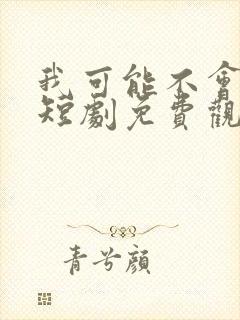 我可能不會
短劇免費觀
青兮顏